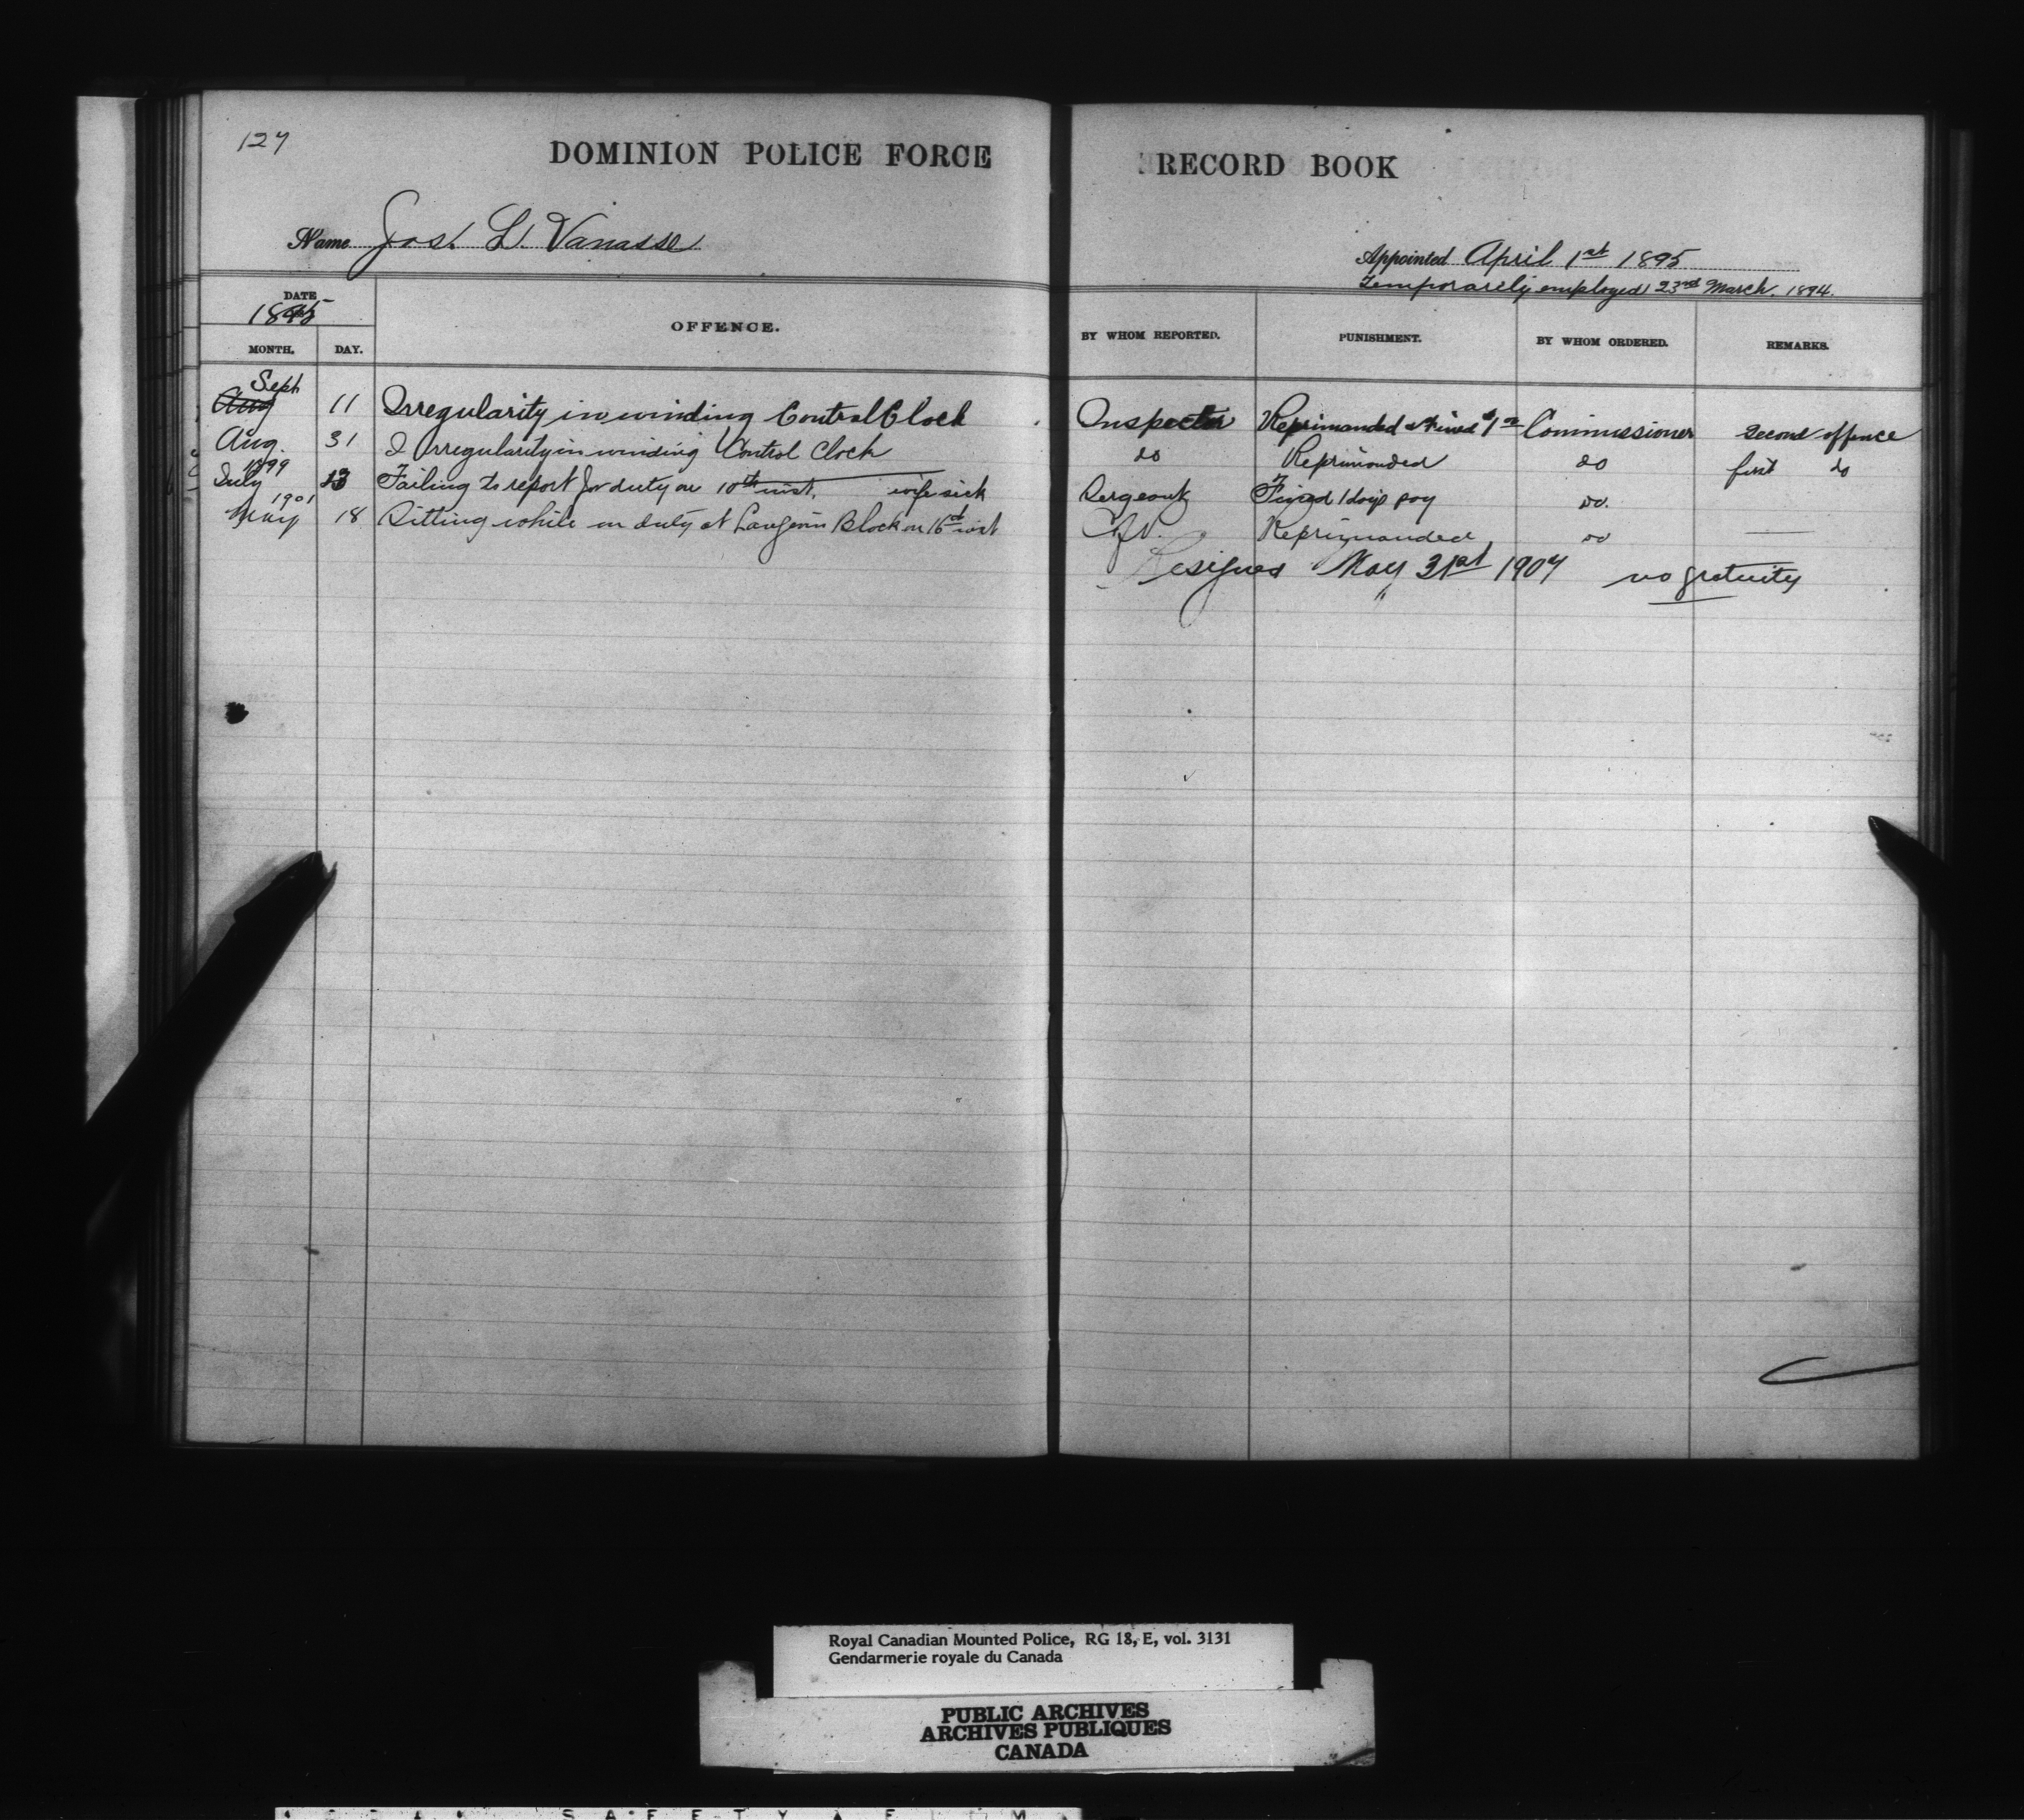 127
DOMINION POLICE FORCE RECORD BOOK
Name Jos. L. Vanasse
Appointed April 1st 1895
Temporarily employed 23rd March. 1894.
DATE
1895
MONTH. DAY. OFFENCE. BY WHOM REPORTED. PUNISHMENT. BY WHOM ORDERED. REMARKS.
Sept
Aug 11 Irregularity in winding Control Clock Inspector Reprimanded & Fined $1 00 Commissioner Second offence
Aug. 31 Irregularity in winding Control Clock do Reprimanded do first do
1899
July 13 Failing to report for duty on 10th inst. wife sick Sergeant Fined 1 days pay do.
1901
May 18 Sitting while on duty at Langevin Block on 16th inst Reprimanded do
Resigned May 31st 1907 no gratuity
Royal Canadian Mounted Police, RG 18, E, vol. 3131
Gendarmerie royale du Canada
PUBLIC ARCHIVES
ARCHIVES PUBLIQUES
CANADA